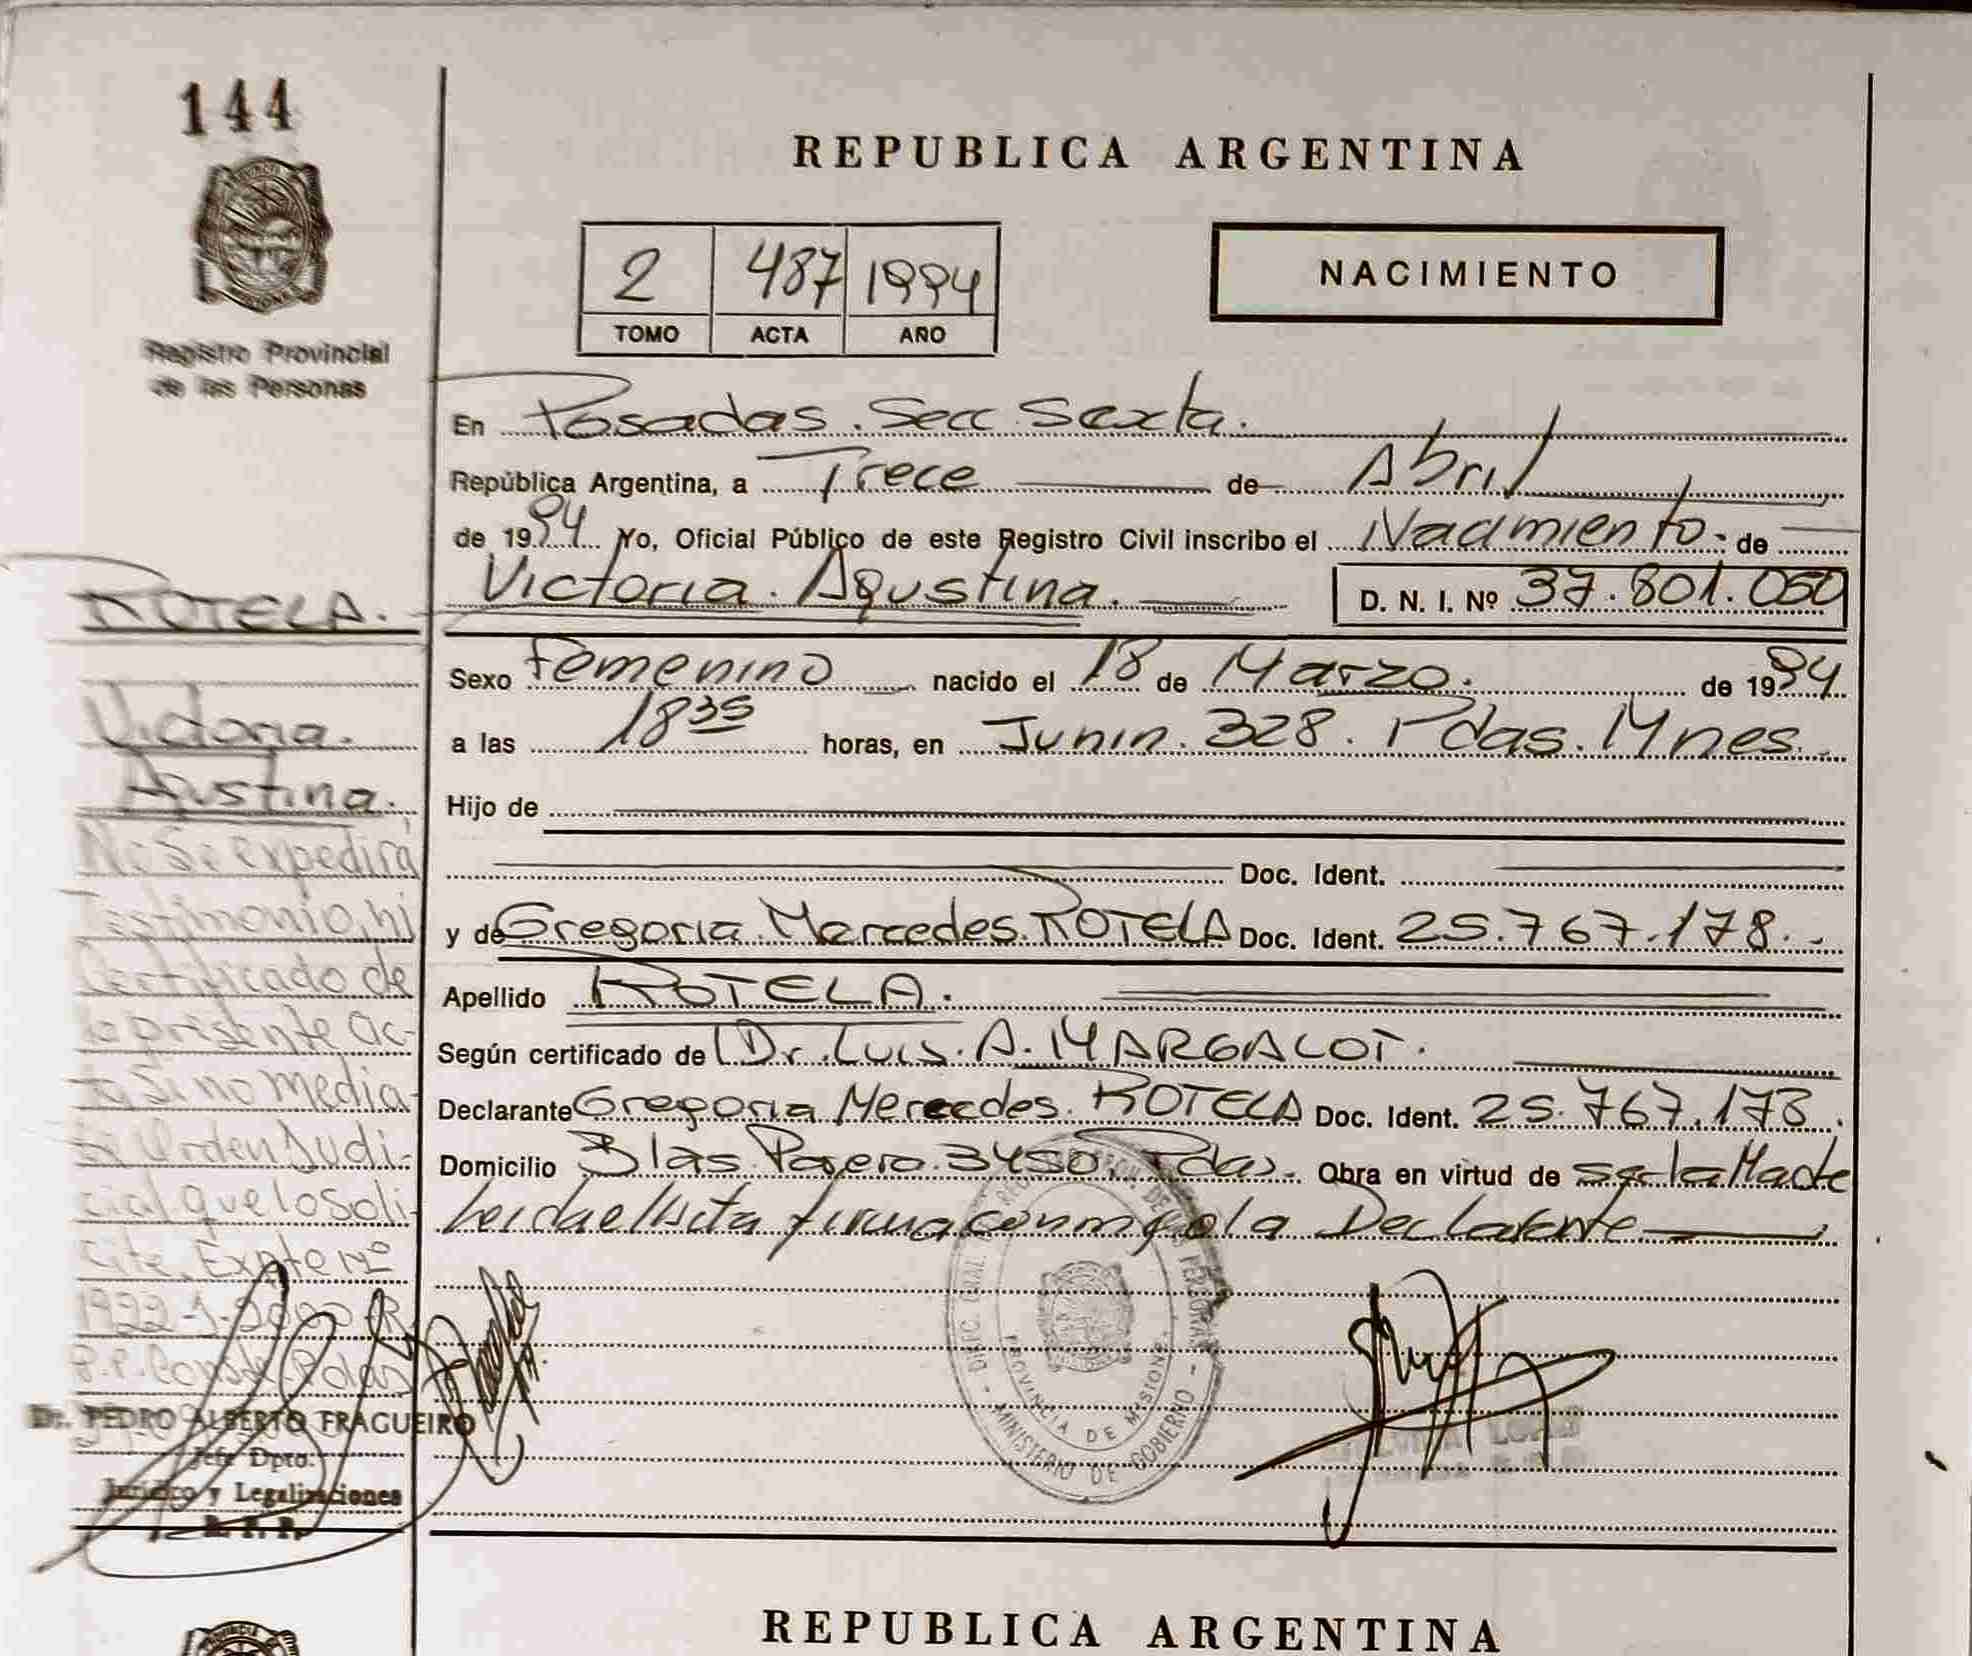 144
REPUBLICA ARGENTINA
2 487 1994
TOMO ACTA AÑO
NACIMIENTO
Registro Provincial
de las Personas
En Posadas. Secc Sexta.
República Argentina, a Trece de Abril
de 1994 Yo, Oficial Público de este Registro Civil inscribo el Nacimiento de
Victoria Agustina. D. N. I. Nº 37.801.060
Sexo Femenino nacido el 18 de Marzo. de 1994
a las 18 35 horas, en Junin. 328. Pdas. Mnes.
Hijo de
Doc. Ident.
y de Gregoria Mercedes ROTELA Doc. Ident. 25.767.178.
Apellido ROTELA.
Según certificado de Dr. Luis. A. MARGALOT.
Declarante Gregoria Mercedes. ROTELA Doc. Ident. 25.767.178.
Domicilio Blas Parera 3450. Pdas. Obra en virtud de ser la Madre
Leida el Acta firma conmigo la Declarante
ROTELA.
Victoria.
Agustina.
No Se expedirá
Testimonio, ni
Certificado de
la presente Ac-
ta Si no media
Orden Judi-
cial que lo Soli-
cite. Expte Nº
1922-1-2000
Dr. PEDRO ALBERTO FRAGUEIRO
Jefe Dpto.
Jurídico y Legalizaciones
R. P. P.
DIREC. GRAL. DEL REG. PROV. DE LAS PERSONAS
PROVINCIA DE MISIONES
MINISTERIO DE GOBIERNO
REPUBLICA ARGENTINA